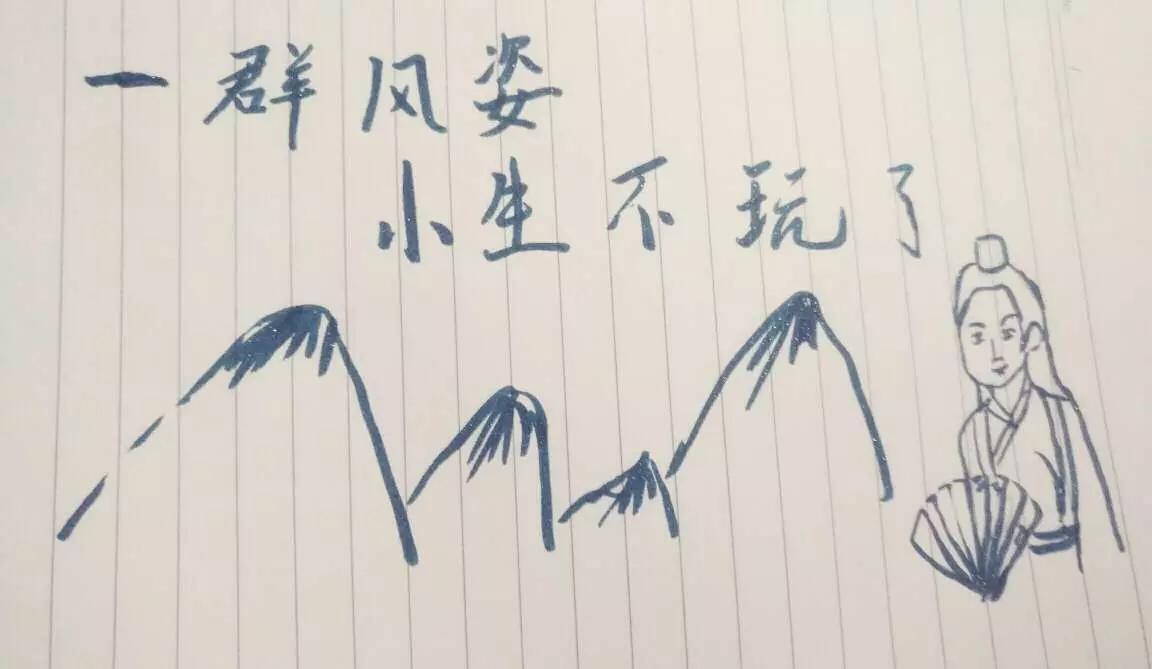 一群风姿
小生不玩了